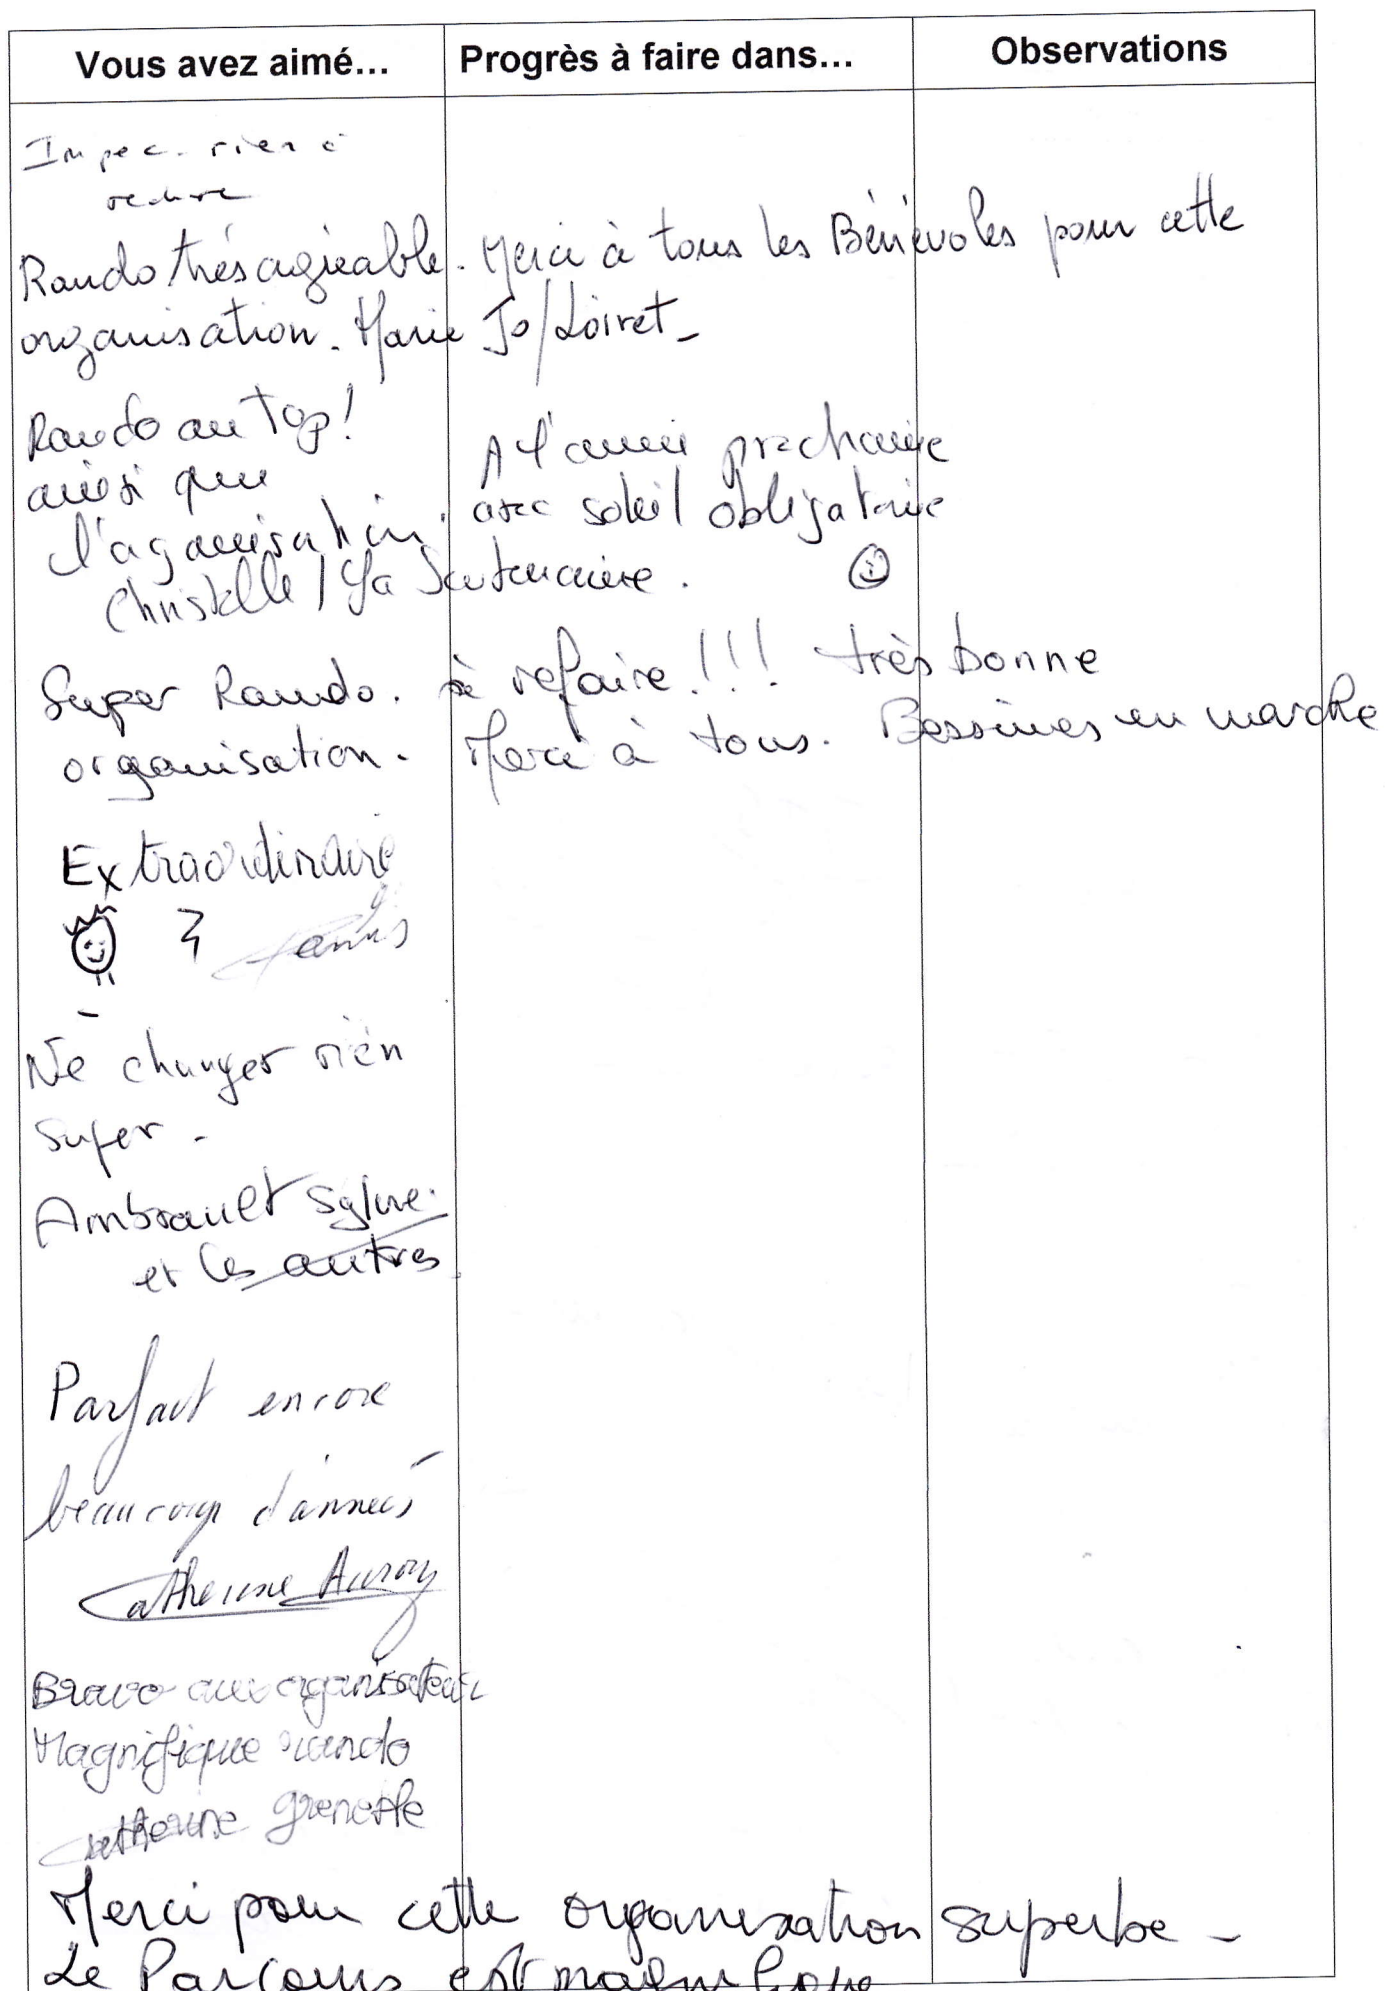 Vous avez aimé... Progrès à faire dans... Observations
Impec. rien à
redire
Rando très agréable. Merci à tous les Bénévoles pour cette
organisation. Marie Jo/Loiret_
Rando au Top!
ainsi que
l'organisation.
Christelle / La Souterraine.
A l'année prochaine
avec soleil obligatoire
Super Rando. à refaire!!! très bonne
organisation. Merci à tous. Bessines en marche
Extraordinaire
Ne changer rien
Super -
Ambrault Sylvie.
et les autres
Parfait encore
beaucoup d'années
Catherine Auroy
Bravo aux organisateurs
Magnifique rando
Catherine
Merci pour cette organisation superbe -
Le Parcours est magnifique